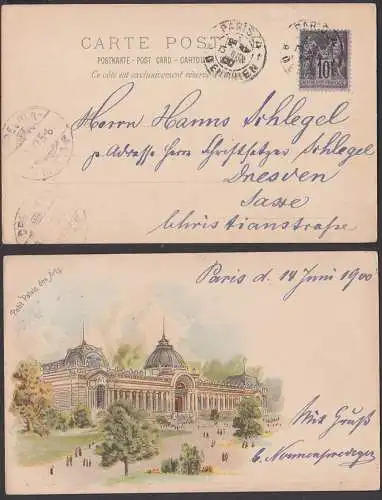 CARTE POSTALE
POSTKARTE - POST CARD - CARTOLINA
Ce côté est exclusivement réservé
PARIS
10
Herrn Hanns Schlegel
p. Adresse Herrn Schriftsetzer Schlegel
Dresden
Saxe
Christianstraße
Petit Palais des Arts
Paris d. 14 Juni 1900
Mit Gruß